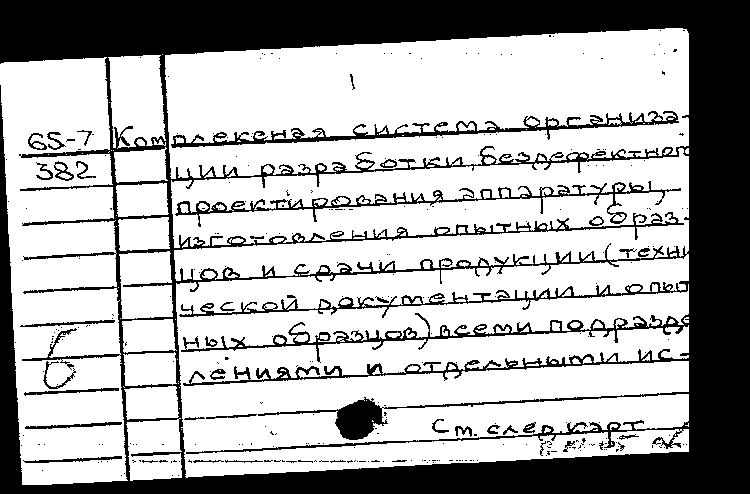 65-7 Комплексная система организа-
382 ции разработки, бездефектного
проектирования аппаратуры,
изготовления опытных образ-
цов и сдачи продукции (техни
ческой документации и опыт
ных образцов) всеми подразде
лениями и отдельными ис-
б
См. след. карт